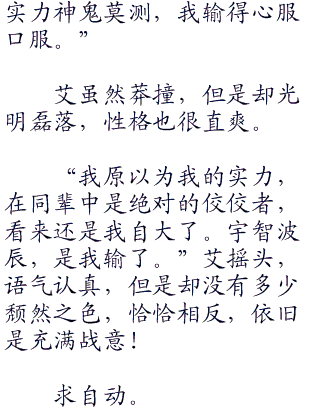 实力神鬼莫测，我输得心服
口服。”
艾虽然莽撞，但是却光
明磊落，性格也很直爽。
“我原以为我的实力，
在同辈中是绝对的佼佼者，
看来还是我自大了。宇智波
辰，是我输了。”艾摇头，
语气认真，但是却没有多少
颓然之色，恰恰相反，依旧
是充满战意！
求自动。